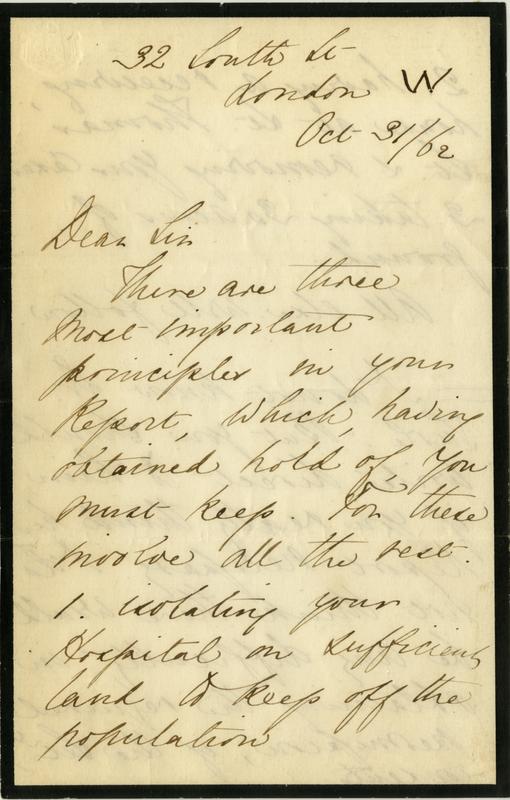 32 South St
London W.
Oct 31/62
Dear Sir
There are three
most important
principles in your
Report, which, having
obtained hold of, you
must keep. For these
involve all the rest.
1. isolating your
Hospital on sufficient
land to keep off the
population